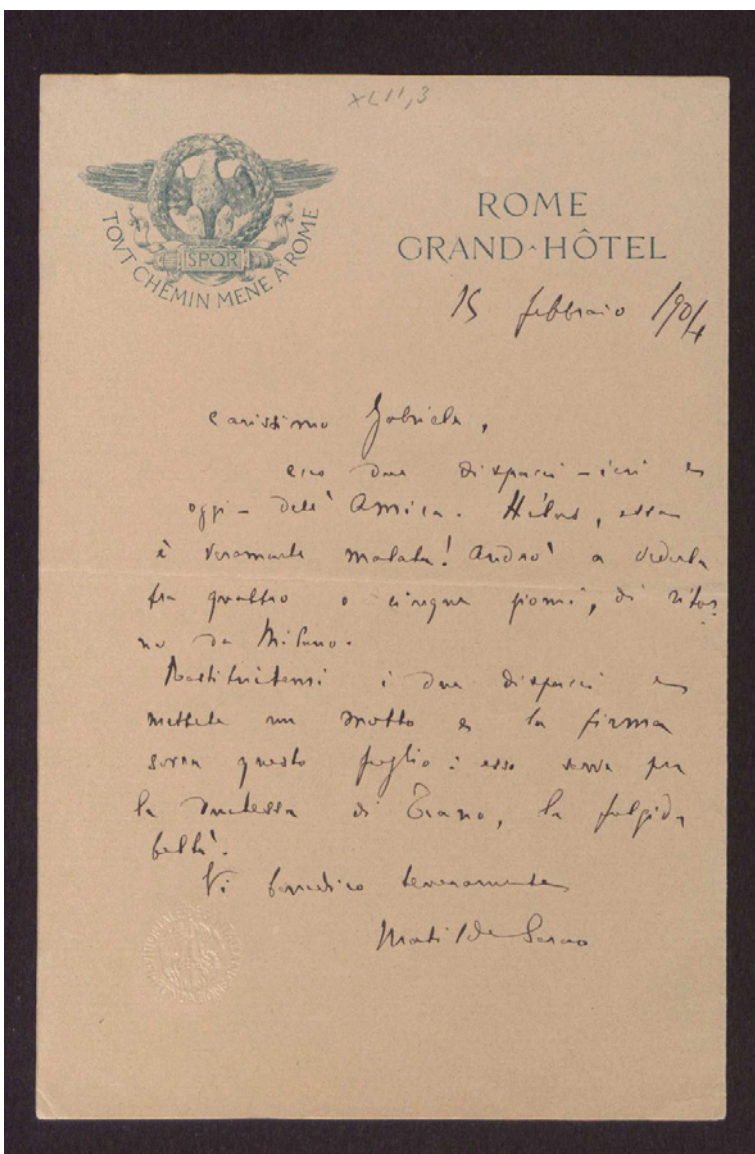 XLII,3
TOVT CHEMIN MENE À ROME
SPQR
ROME
GRAND-HÔTEL
15 febbraio 1904
Carissimo Gabriele,
ecco due dispacci – ieri e
oggi – dell'Amica. Hélas, essa
è veramente malata! Andrò a vederla
fra quattro o cinque giorni, di ritor-
no da Milano.
Restituitemi i due dispacci e
mettete un motto e la firma
sovra questo foglio: esso serve per
la duchessa di
, la fulgida
beltà.
Vi benedico teneramente
Matilde Serao